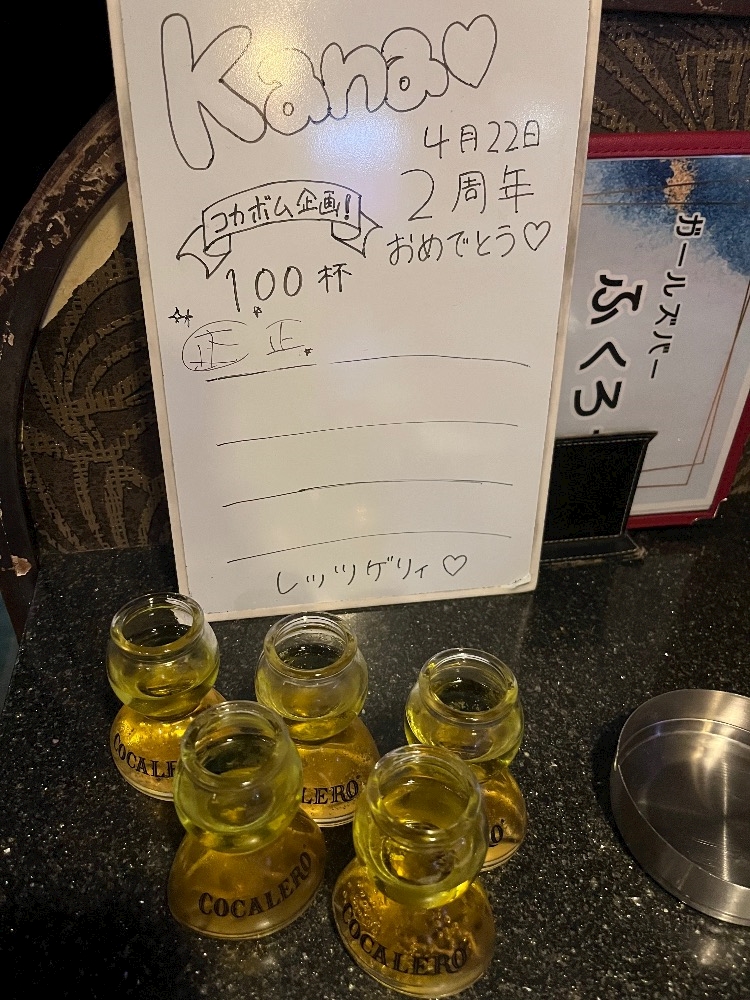 Kana♡
4月22日
2周年
おめでとう♡
コカボム企画!
100杯
正 正
レッツゲリィ♡
ガールズバー
ふくろ
COCALE
LERO
O
COCALERO
COCALERO